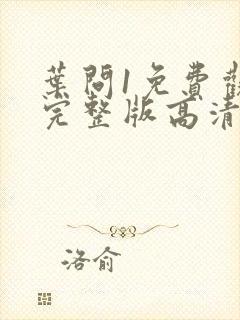 葉問1免費觀
完整版高清
洛俞